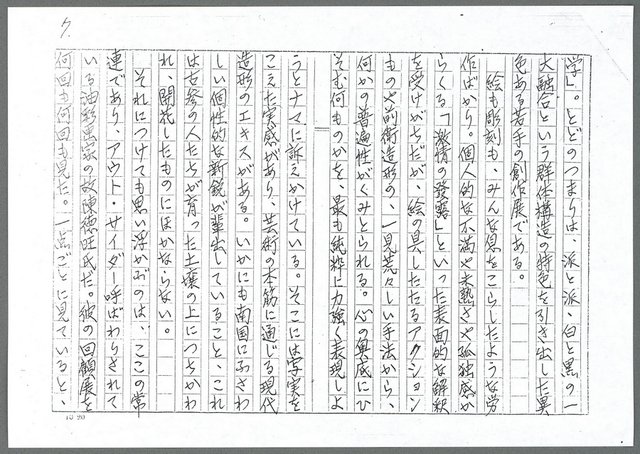 7.
学」。とどのつまりは、派と派・白と黒の一
大融合という群体構造の特色を引き出した異
色ある若手の創作展である。
絵も彫刻も、みんな息をこらしたような労
作ばかり。個人的な不満や未熟さや孤独感か
らくる「激情の発露」といった表面的な解釈
を受けがちだが、絵の具したたるアクション
ものや前衛造形の、一見荒々しい手法から、
何かの普遍性がくみとられる。心の奥底にひ
そむ何ものかを、最も純粋に力強く表現しよ
うとナマに訴えかけている。そこには写実を
こえた実感があり、芸術の本筋に通じる現代
造形のエキスがある。いかにも南国にふさわ
しい個性的な新鋭が輩出していること、これ
は古参の人たちが育った土壌の上につちかわ
れ、開花したものにほかならない。
それにつけても思い浮かぶのは、ここの常
連であり、アウト・サイダー呼ばわりされて
いる油彩画家の故陳徳旺氏だ。彼の回顧展を
何回も何回も見た。一点ごとに見ていると、